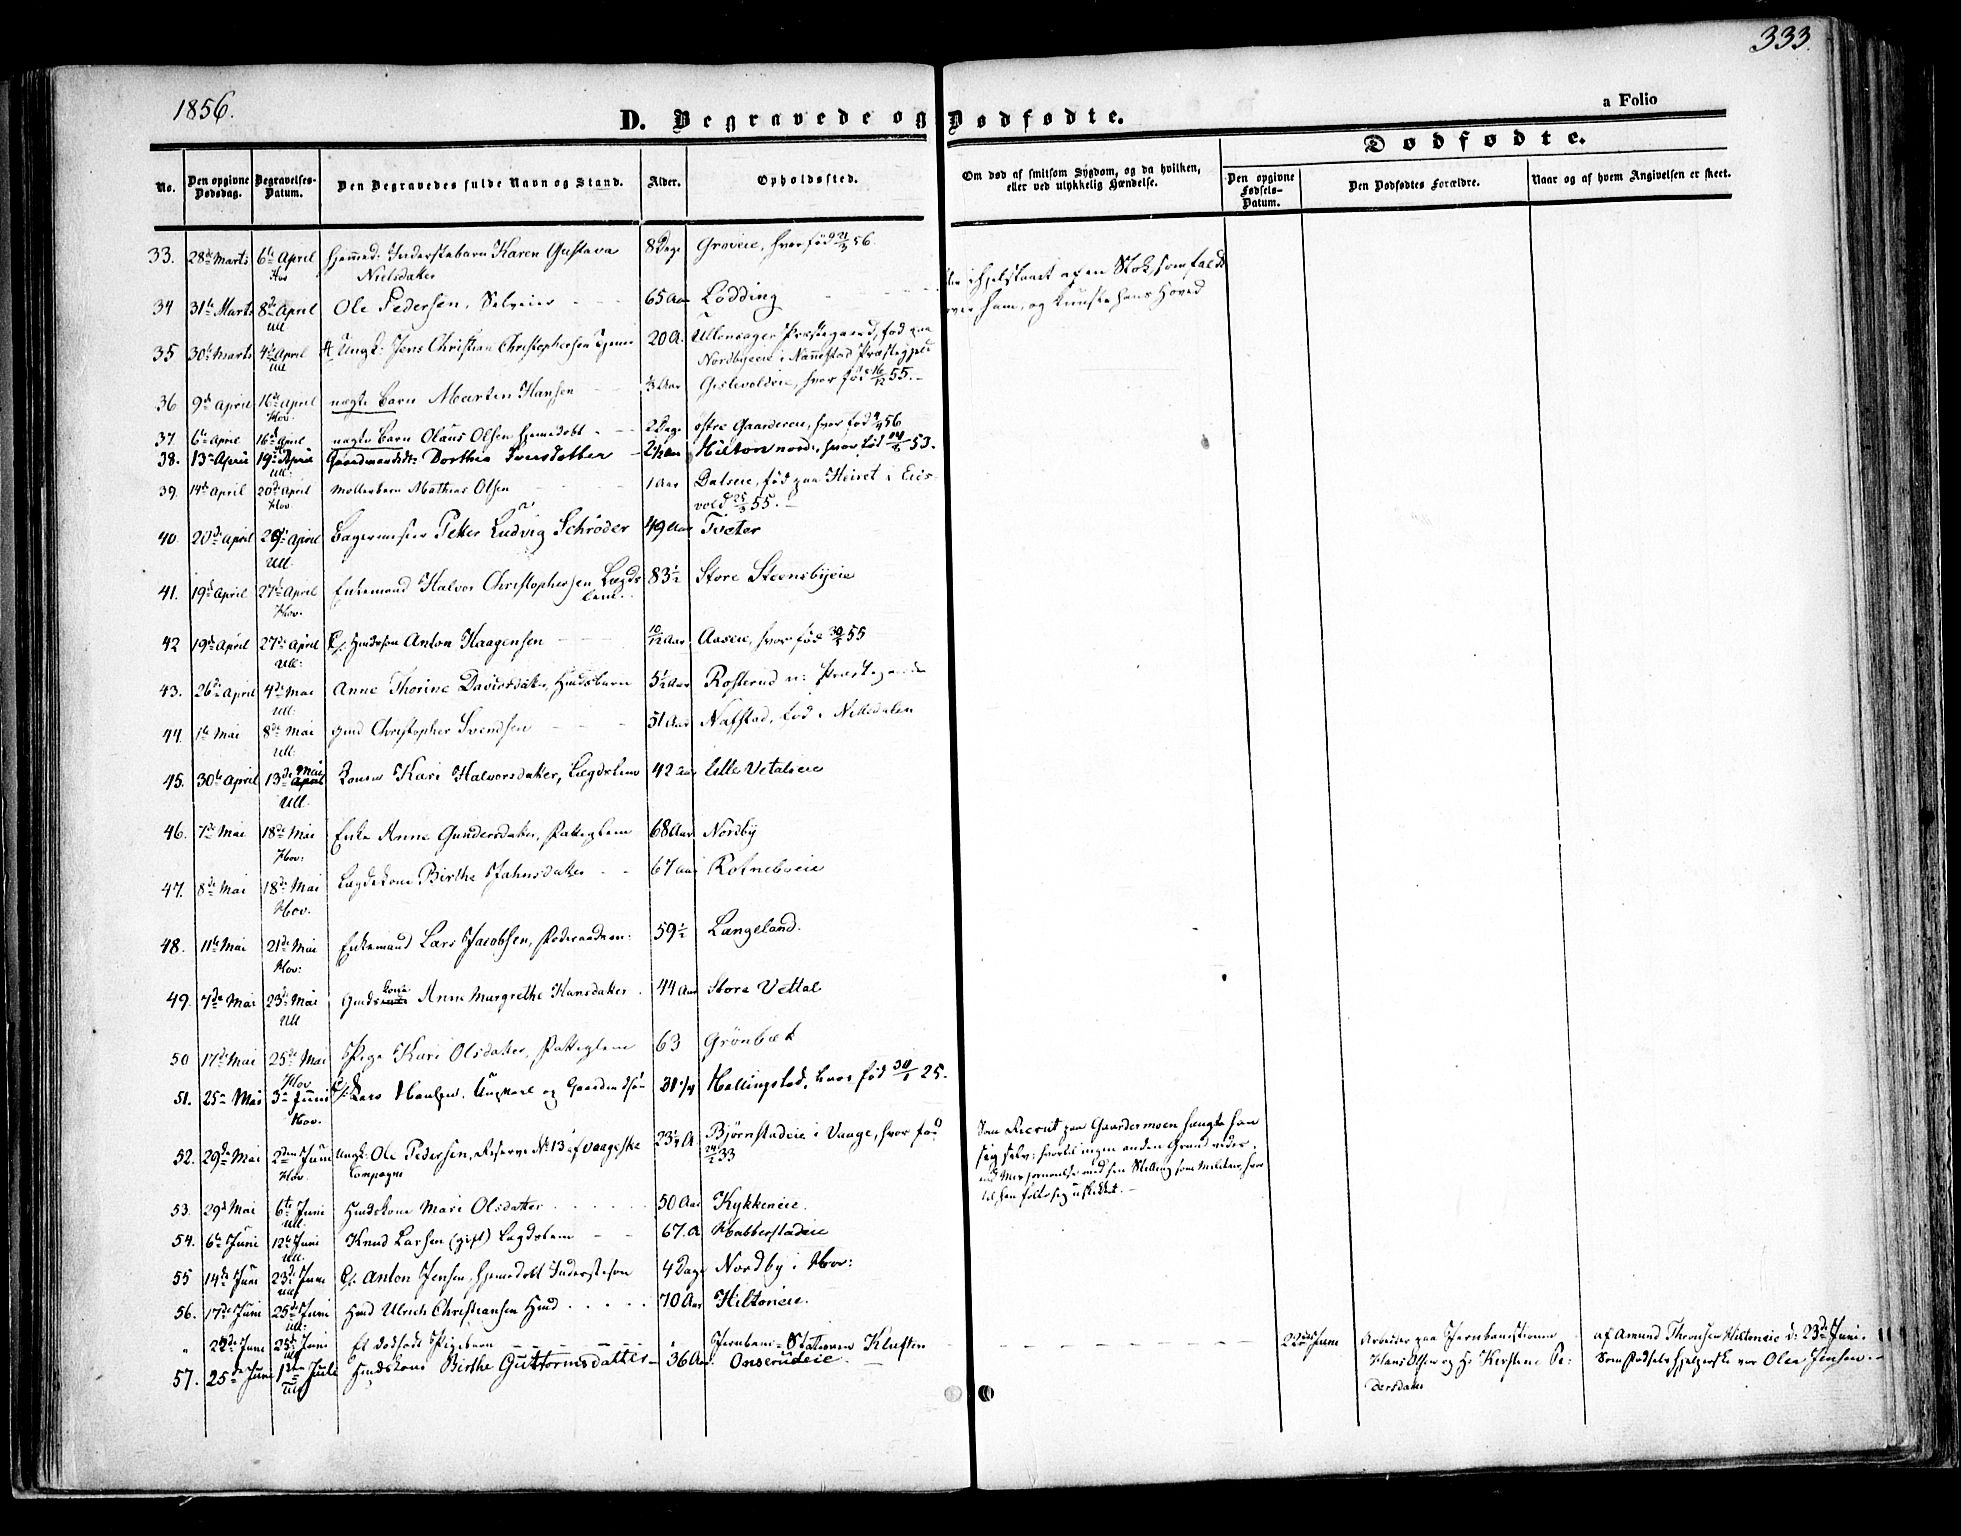 333.
1856.
D. Begravede og Dødfødte.
a Folio
Dødfødte.
No.
Den opgivne Dødsdag.
Begravelses-Datum.
Den Begravedes fulde Navn og Stand.
Alder.
Opholdssted.
Om død af smitsom Sygdom, og da hvilken,
eller ved ulykkelig Hændelse.
Den opgivne Fødsels-Datum.
Den Dødfødtes Forældre.
Naar og af hvem Angivelsen er skeet.
33. 28de Marts 6te April Hjemmed. Inderstebarn Karen Gustava 8 Dage Groeie, hvor fød 21/3 56.
Hov Nielsdatter
34 31te Marts 8de April Ole Pedersen, Selveier 65 Aar Lødding ihjelslaaet af en Stok, som faldt
Ull over ham, og knuste hans Hoved
35 30te Marts 4de April Ungk: Jens Christian Christophersen 20 A. Ullensager Præstegaard, fød paa
Ull Nordbyeie i Nannestad Præstegjeld
36 9de April 16de April uægte Barn Marten Hansen 1/3 Aar Gislevoldeie, hvor fød 16/12 55.
Hov.
37 6te April 16de April uægte Barn Olaus Olsen hjemmedøbt 2 Dage østre Gaardereie, hvor fød 4/4 56
38. 13de April 19de April Gaardmandsdt: Dorthea Iversdatter Hilton nord:, hvor fød 53.
Ull:
39. 14de April 20de April Mathias Olsen 1 Aar Dalseie, fød paa i Eids
Hov vold 25/3 55.
40. 20de April 29de April Bagermester Petter Ludvig Schrøder 49 Aar Tveter
Ull.
41. 19de April 27de April Enkemand Halvor Christophersen Lægds 83½ Store Steensbyeie
Hov. lem
42 19de April 27de April Hmdssøn Anton Haagensen 10/12 Aar Aaseie, hvor fød 30/5 55
Ull:
43. 26de April 4de Mai Anne Thorine Davidsdatter, Hmdsbarn 5½ Aar Rosterud
Ull:
44. 1te Mai 8de Mai Gmd Christopher Svendsen 51 Aar Nafstad, fød i Nittedalen
Ull:
45. 30te April 13de Mai April Konen Kari Halvorsdatter, Lægdslem 42 Aar Lille Vetaleie
Ull.
46. 7de Mai 18de Mai Enke Anne Gundersdatter, Fattiglem 68 Aar Nordby
Hov:
47. 8de Mai 18de Mai Lægdskone Birthe Jahnsdatter 67 Aar
Hov.
48. 11te Mai 21de Mai Enkemand Lars Jacobsen, Føderaadsm: 59½ Langeland.
Hov:
49. 7de Mai 23de Mai Gmdskone Anne Margrethe Hansdatter 44 Aar Store Vettal
Ull
50 17de Mai 25de Mai Pige Kari Olsdatter, Fattiglem 63 Grønbæk
Hov
51. 25de Mai 3de Juni Lars Hansen. Ungkarl og Gaardmdsøn 31 1/4 Hallingstad, hvor fød 25.
Hov.
52. 29de Mai 2den Juni Ungk: Ole Pedersen, Reserve No 13 af Vaageske 23¼ A. Bjørnstadeie i Vaage, hvor fød Som Recrut paa Gaardermoen hængte han
Hov. Compagni 33 sig selv; hvortil ingen anden Grund vides
end Misfornøielse med sin Stilling som Militær, hvor
til han følte sig uskikket.
53. 29de Mai 6te Juni Hmdskone Mari Olsdatter 50 Aar Kykkeneie.
Ull.
54. 6te Juni 12te Juni Knud Larsen (gift) Lægdslem 67. A Habberstadeie
Ull.
55 14de Juni 23de Juni Anton Jensen, hjemmedøbt Inderstesøn 4 Dage Nordby i Hov:
Ull
56. 17de Juni 25de Juni Hmd Ulrich Christiansen Hmd 70 Aar Hiltoneie.
Ull.
" 22de Juni 25de Juni Et dødfødt Pigebarn " Jernbane-Stationen Kløften 22de Juni Arbeider paa Jernbanestationen af Amund Thorsen Hiltoneie d: 23de Juni.
Ull Hans Olsen og H: Kirstine Pe- Som Fødselshjelperske var Olea Jensen.
dersdatter
57. 25de Juni 1ste Juli Hmdskone Birthe Guttormsdatter 36 Aar. Onserudeie.
Ull